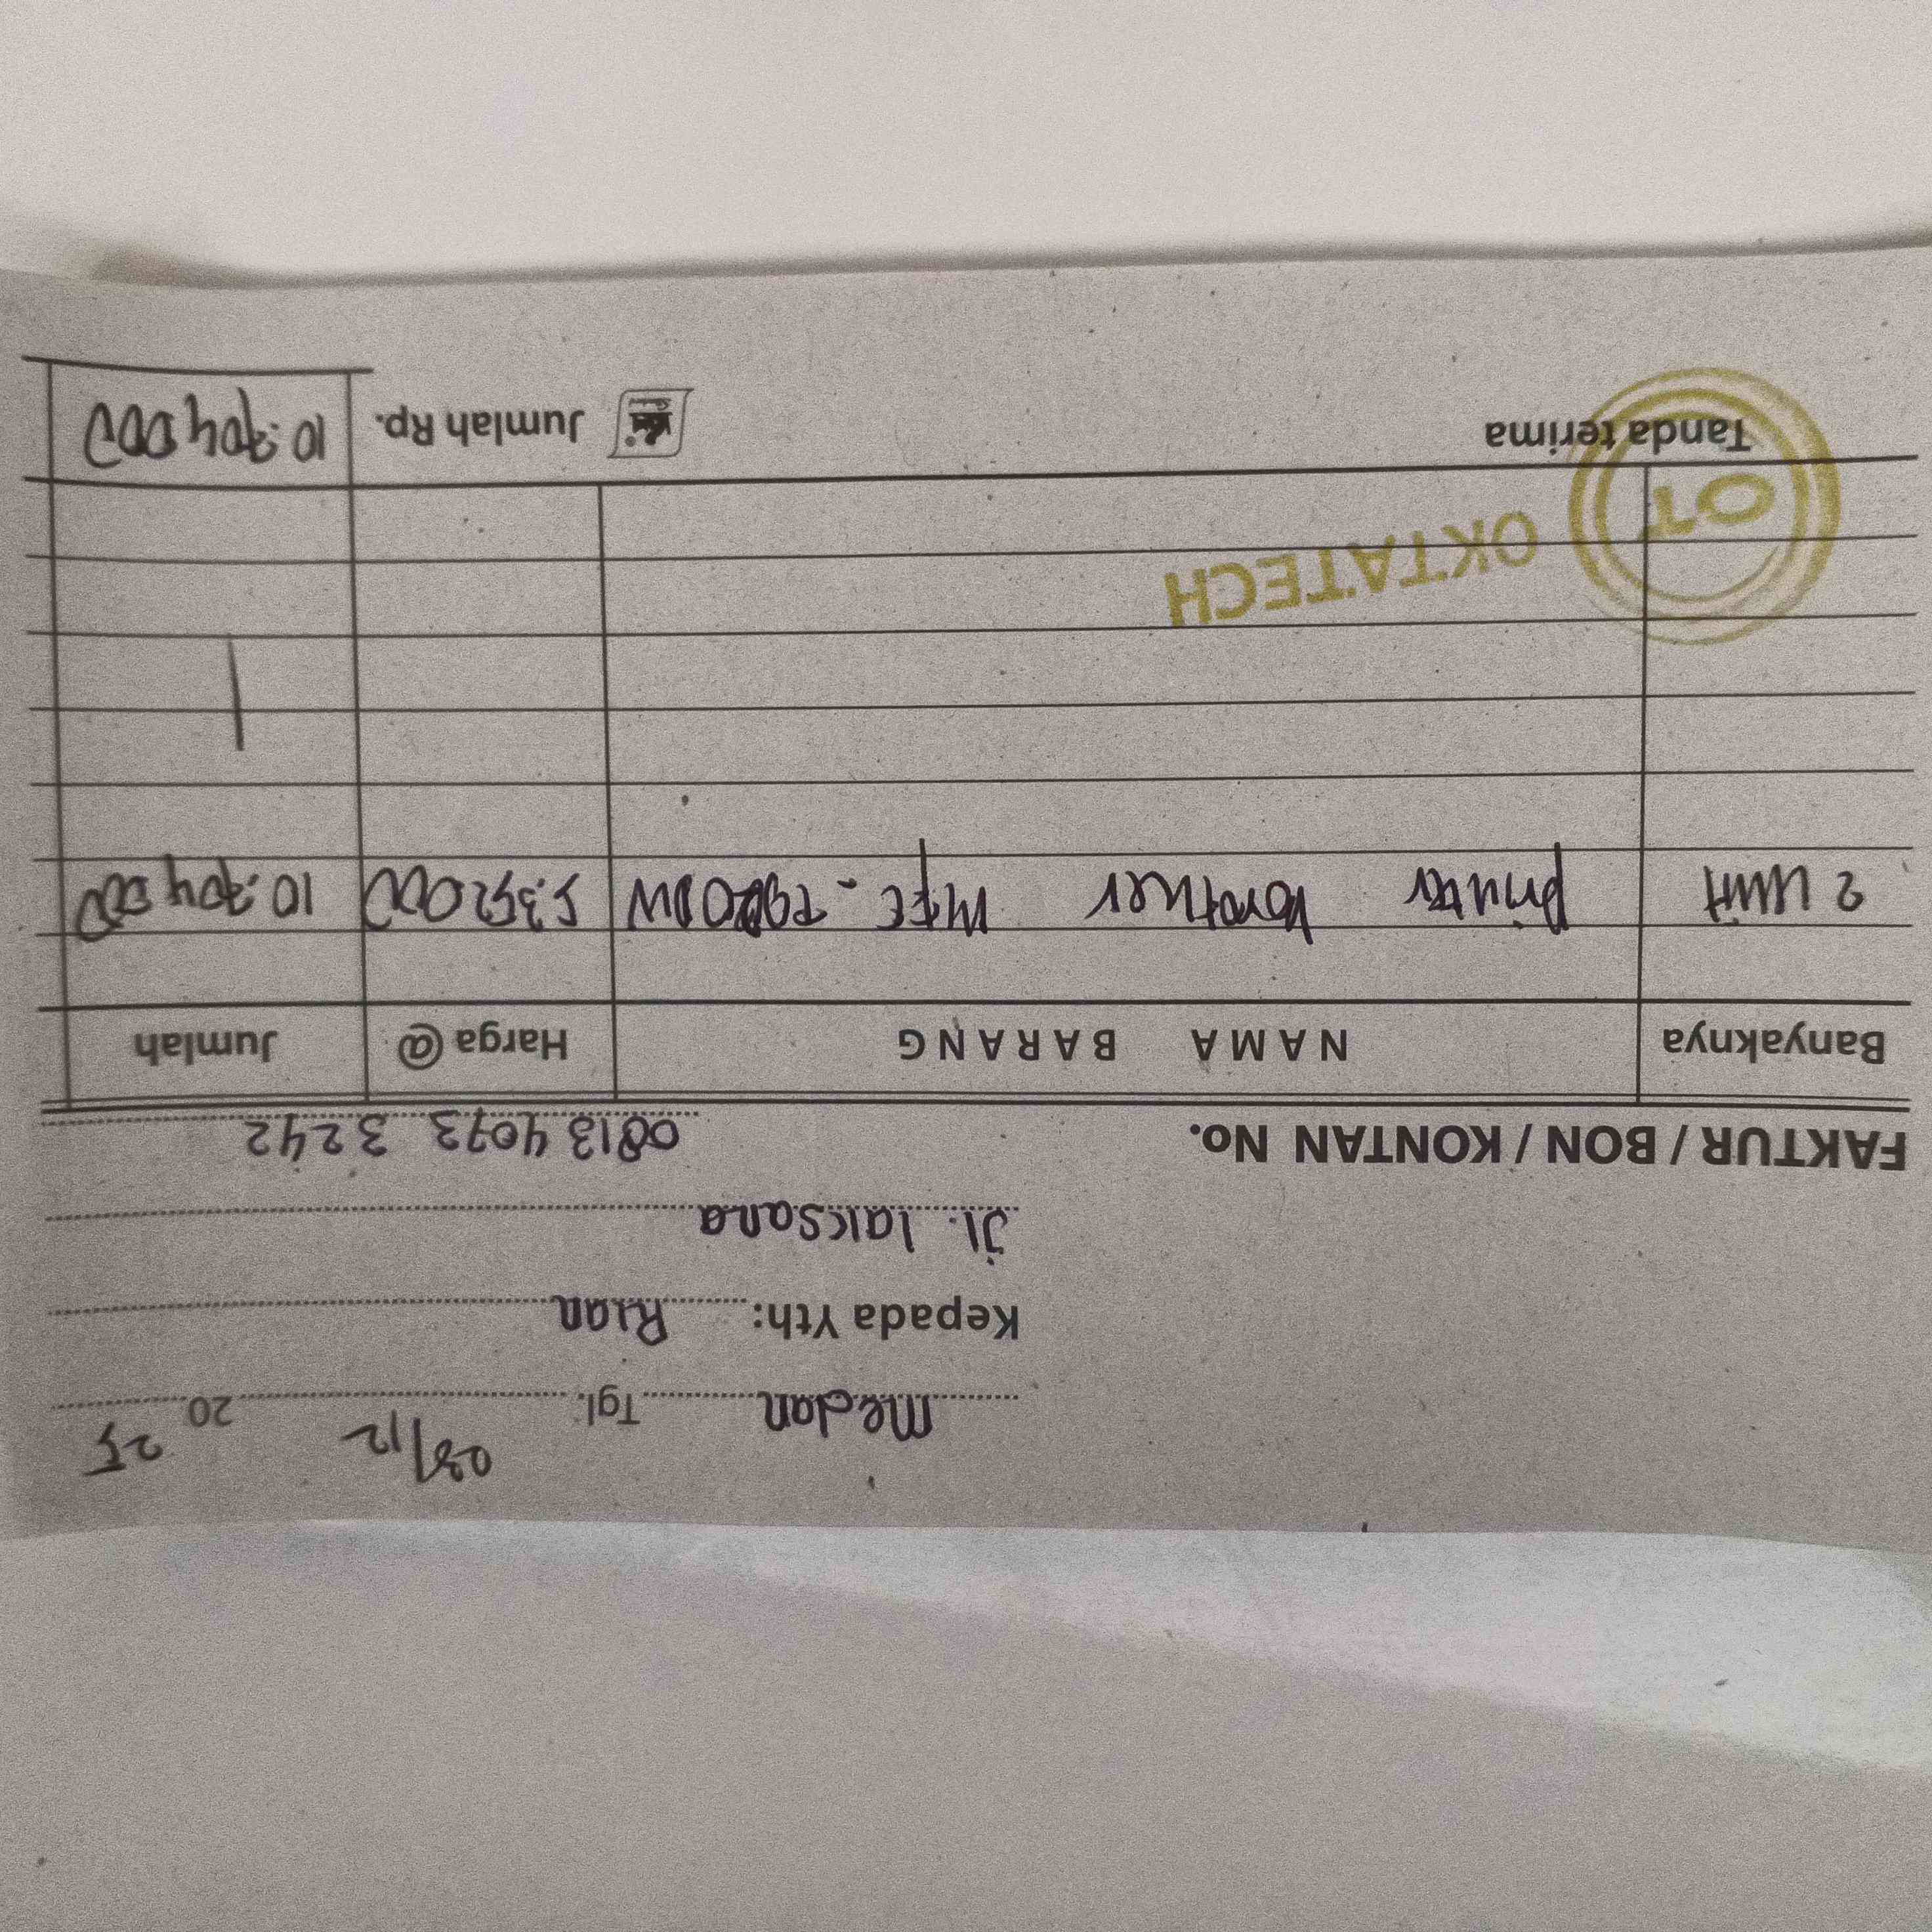 Medan Tgl. 08/12 20 25
Kepada Yth: Rian
Jl. laksana
FAKTUR / BON / KONTAN No. 0813 4073 3242
Banyaknya NAMA BARANG Harga @ Jumlah
2 Unit printer brother MFC - T920DW 5.352000 10.704000
OKTATECH
OT
Tanda terima Jumlah Rp. 10.704000